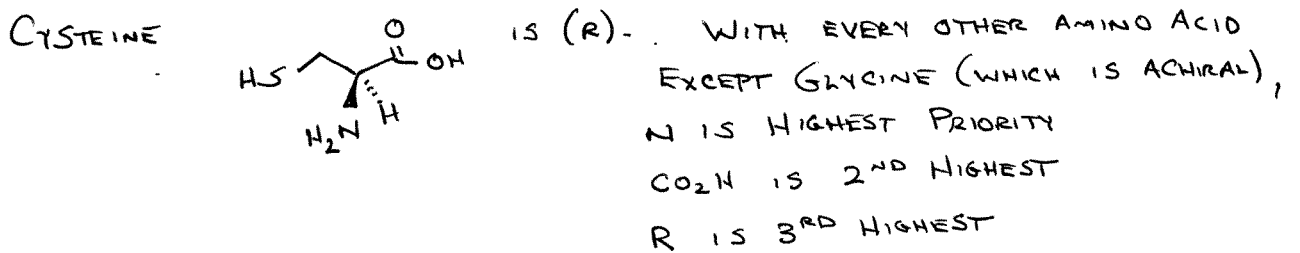 CYSTEINE is (R)-. WITH EVERY OTHER AMINO ACID
EXCEPT GLYCINE (WHICH IS ACHIRAL),
N IS HIGHEST PRIORITY
CO₂H IS 2ND HIGHEST
R IS 3RD HIGHEST
O
OH
HS
H
H₂N